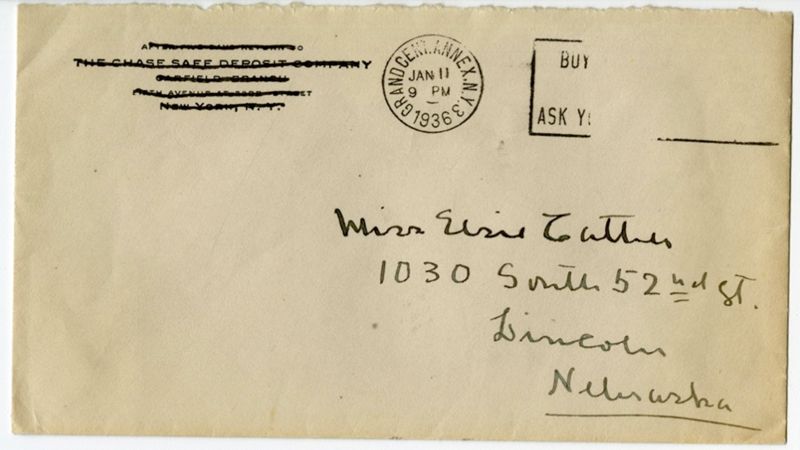 AFTER FIVE DAYS RETURN TO
THE CHASE SAFE DEPOSIT COMPANY
GARFIELD BRANCH
FIFTH AVENUE AT STREET
NEW YORK, N. Y.
GRAND CENT. ANNEX. N.Y. 3
JAN 11
9 PM
1936
BUY
ASK Y
Miss Elsie Cather
1030 South 52nd St.
Lincoln
Nebraska